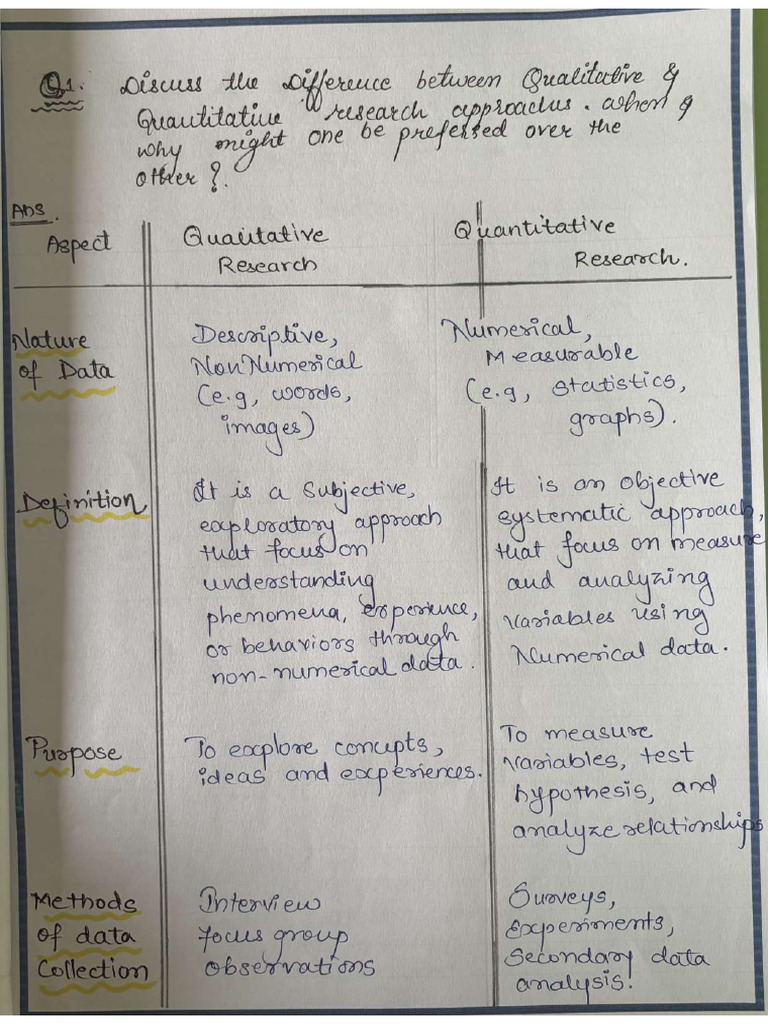 Q1. Discuss the Difference between Qualitative &
Quantitative research approaches. when &
why might one be preferred over the
other?
Ans.
Aspect
Qualitative
Research
Quantitative
Research.
Nature
of Data
Descriptive,
Non Numerical
(e.g, words,
images)
Numerical,
Measurable
(e.g, statistics,
graphs).
Definition
It is a Subjective,
exploratory approach
that focus on
understanding
phenomena, experience,
or behaviors through
non-numerical data.
It is an objective
systematic approach,
that focus on measure
and analyzing
variables using
Numerical data.
Purpose
To explore concepts,
ideas and experiences.
To measure
variables, test
hypothesis, and
analyze relationships
Methods
of data
Collection
Interview
focus group
observations
Surveys,
Experiments,
Secondary data
analysis.